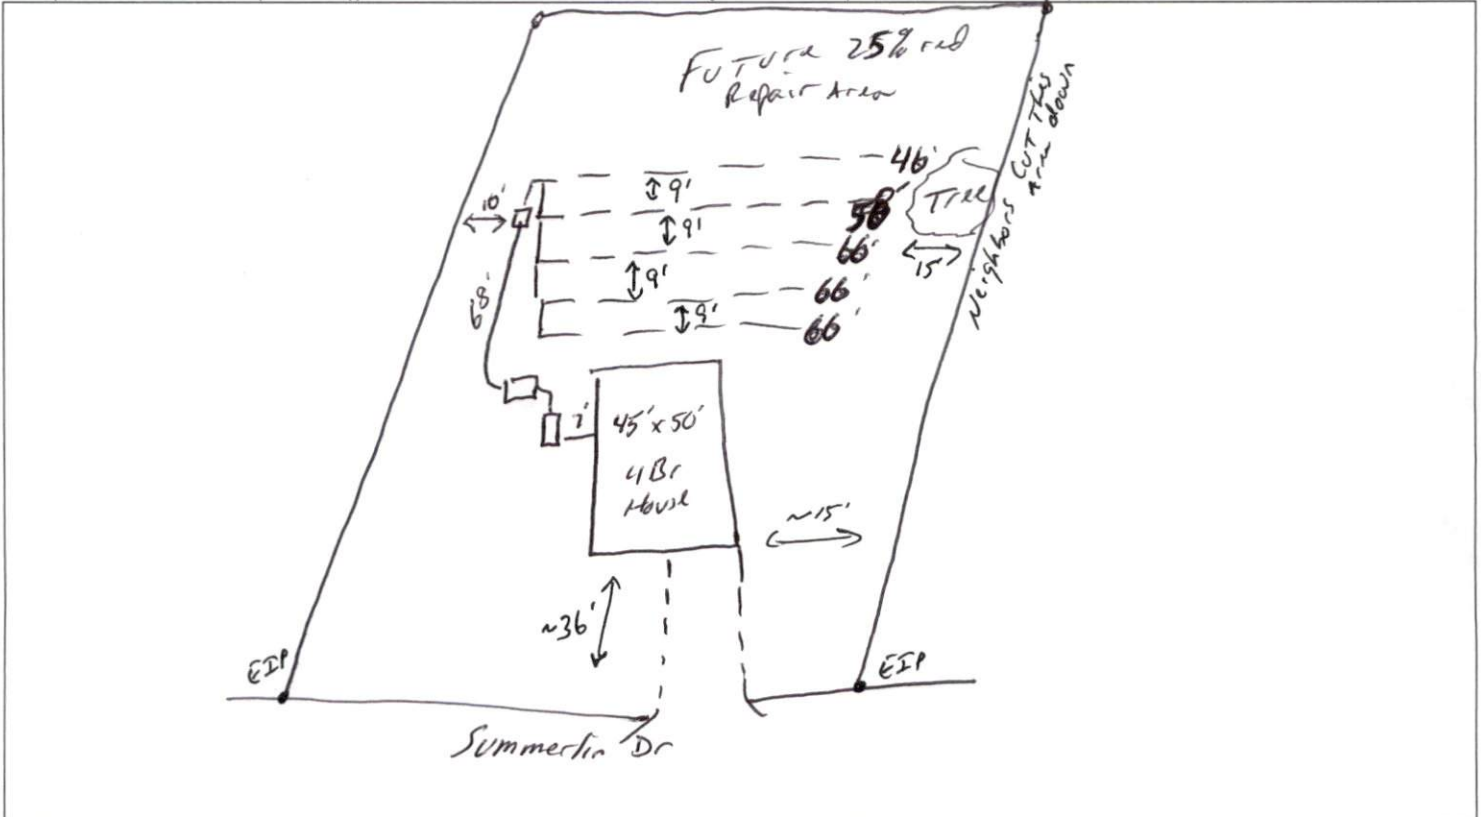 Future 25% red
Repair Area
Neighbors cut this
Area down
46'
Tree
10'
9'
9'
66'
15'
9'
66'
68'
9'
66'
7'
45' x 50'
4 Br
House
~15'
~36'
EIP
EIP
Summerlin Dr